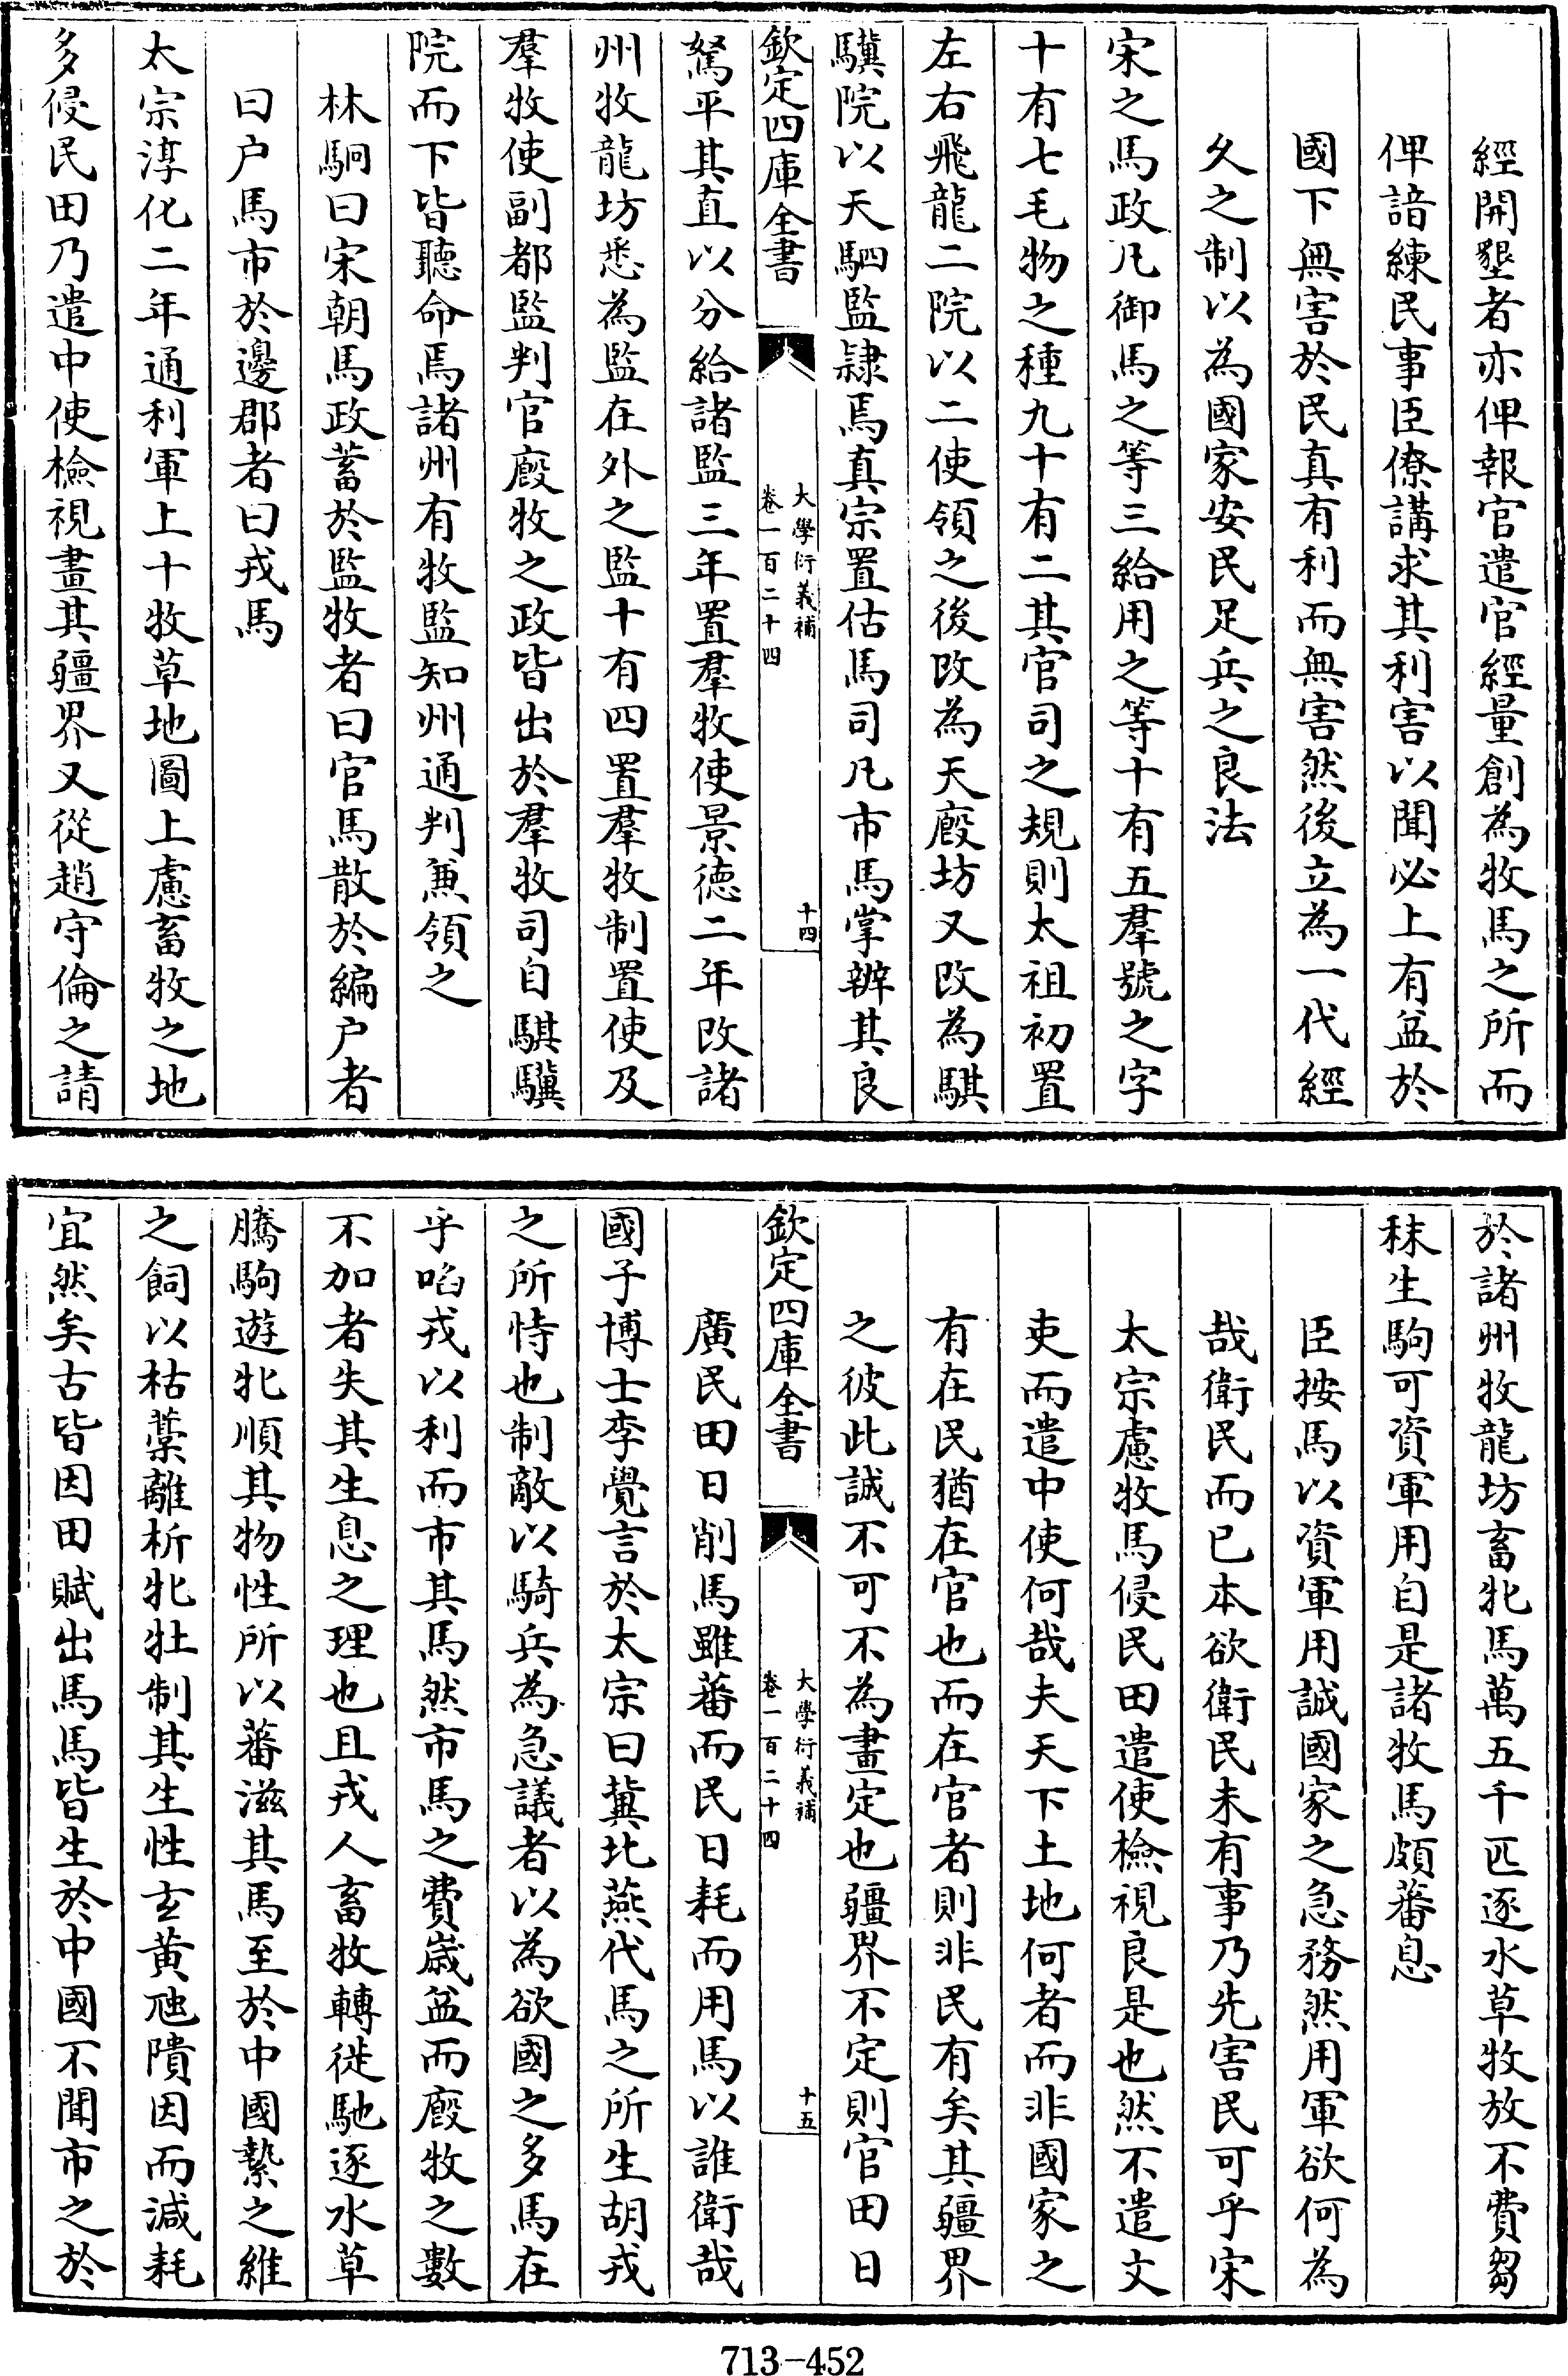 經開墾者亦俾報官遣官經量創為牧馬之所而
俾諳練民事臣僚講求其利害以聞必上有益於
國下無害於民真有利而無害然後立為一代經
久之制以為國家安民足兵之良法
宋之馬政凡御馬之等三給用之等十有五羣號之字
十有七毛物之種九十有二其官司之規則太祖初置
左右飛龍二院以二使領之後改為天廏坊又改為騏
驥院以天駟監隷焉真宗置估馬司凡市馬掌辨其良
欽定四庫全書
大學衍義補
卷一百二十四
十四
駑平其直以分給諸監三年置羣牧使景德二年改諸
州牧龍坊悉為監在外之監十有四置羣牧制置使及
羣牧使副都監判官廏牧之政皆出於羣牧司自騏驥
院而下皆聽命焉諸州有牧監知州通判兼領之
林駉曰宋朝馬政蓄於監牧者曰官馬散於編户者
曰户馬市於邊郡者曰戎馬
太宗淳化二年通利軍上十牧草地圖上慮畜牧之地
多侵民田乃遣中使檢視畫其疆界又從趙守倫之請
於諸州牧龍坊畜牝馬萬五千匹逐水草牧放不費芻
秣生駒可資軍用自是諸牧馬頗蕃息
臣按馬以資軍用誠國家之急務然用軍欲何為
哉衛民而已本欲衛民未有事乃先害民可乎宋
太宗慮牧馬侵民田遣使檢視良是也然不遣文
吏而遣中使何哉夫天下土地何者而非國家之
有在民猶在官也而在官者則非民有矣其疆界
之彼此誠不可不為畫定也疆界不定則官田日
欽定四庫全書
大學衍義補
卷一百二十四
十五
廣民田日削馬雖蕃而民日耗而用馬以誰衛哉
國子博士李覺言於太宗曰冀北燕代馬之所生胡戎
之所恃也制敵以騎兵為急議者以為欲國之多馬在
乎啗戎以利而市其馬然市馬之費歲益而廏牧之數
不加者失其生息之理也且戎人畜牧轉徙馳逐水草
騰駒遊牝順其物性所以蕃滋其馬至於中國縶之維
之飼以枯藁離析牝牡制其生性玄黄虺隤因而減耗
宜然矣古皆因田賦出馬馬皆生於中國不聞市之於
713-452